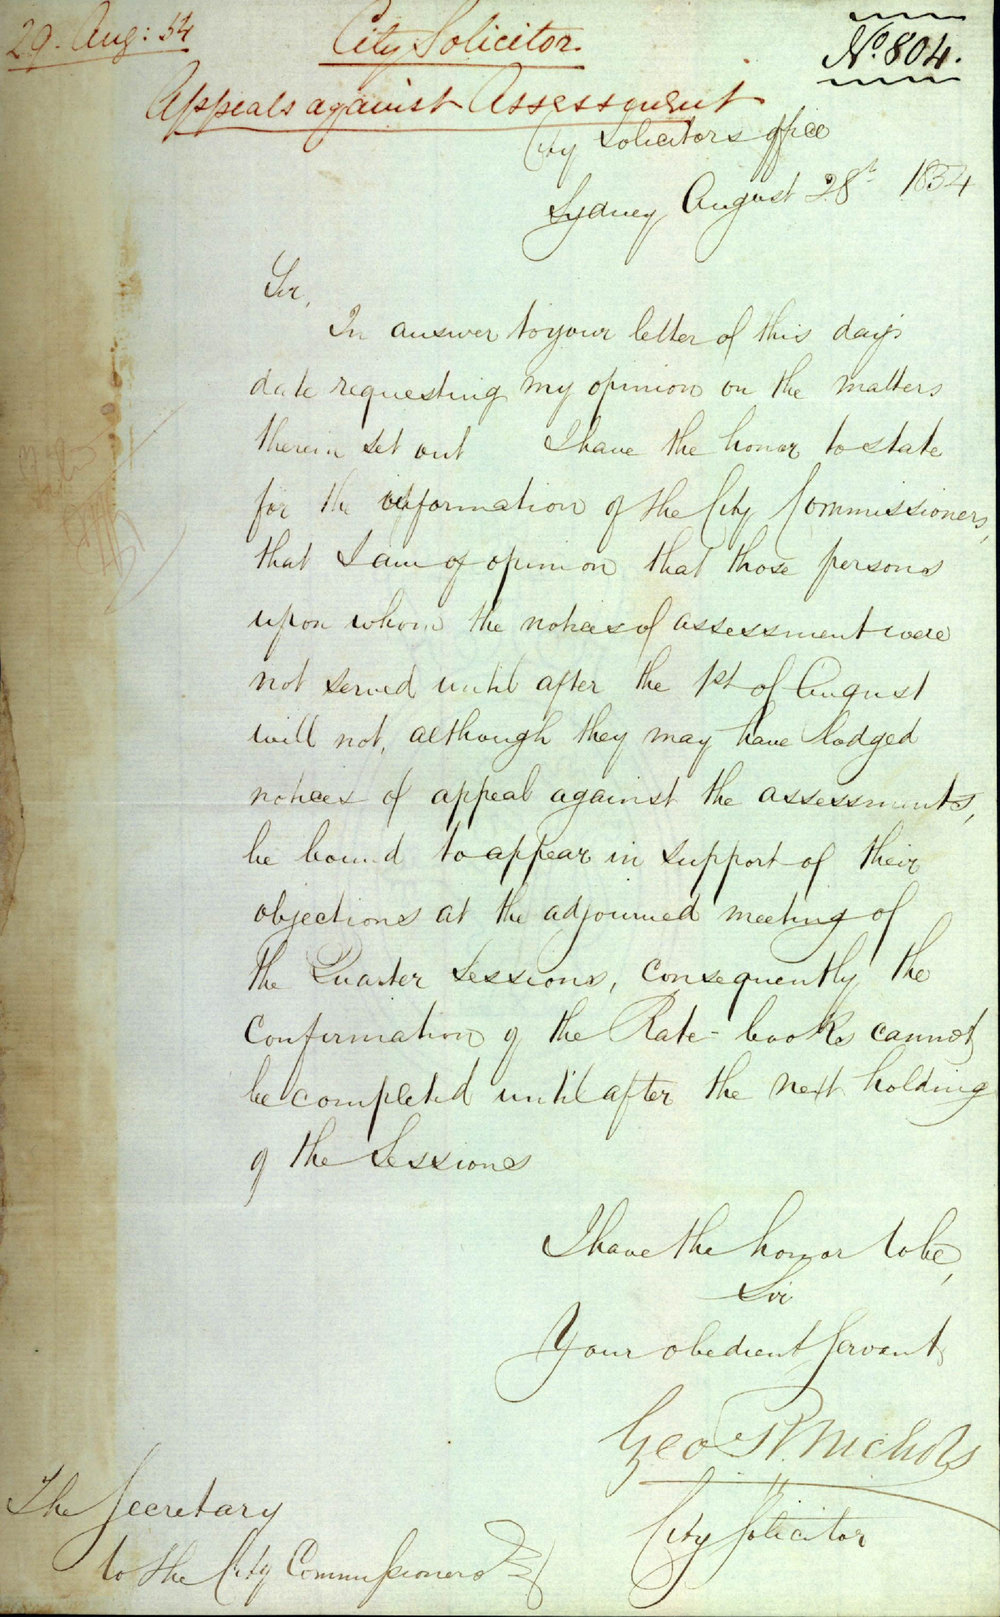 29. Aug: 54
City Solicitor.
No. 804.
Appeals against Assessment
City Solicitors office
Sydney August 28th 1854
Sir,
In answer to your letter of this day's
date requesting my opinion on the matters
therein set out I have the honor to state
for the information of the City Commissioners,
that I am of opinion that those persons
upon whom the notices of assessment were
not served until after the 1st of August
will not, although they may have lodged
notices of appeal against the assessments,
be bound to appear in support of their
objections at the adjourned meeting of
the Quarter Sessions, consequently the
Confirmation of the Rate-books cannot
be completed until after the next holding
of the Sessions
I have the honor to be,
Sir
Your obedient Servant
Geo R. Nichols
City Solicitor
The Secretary
to the City Commissioners